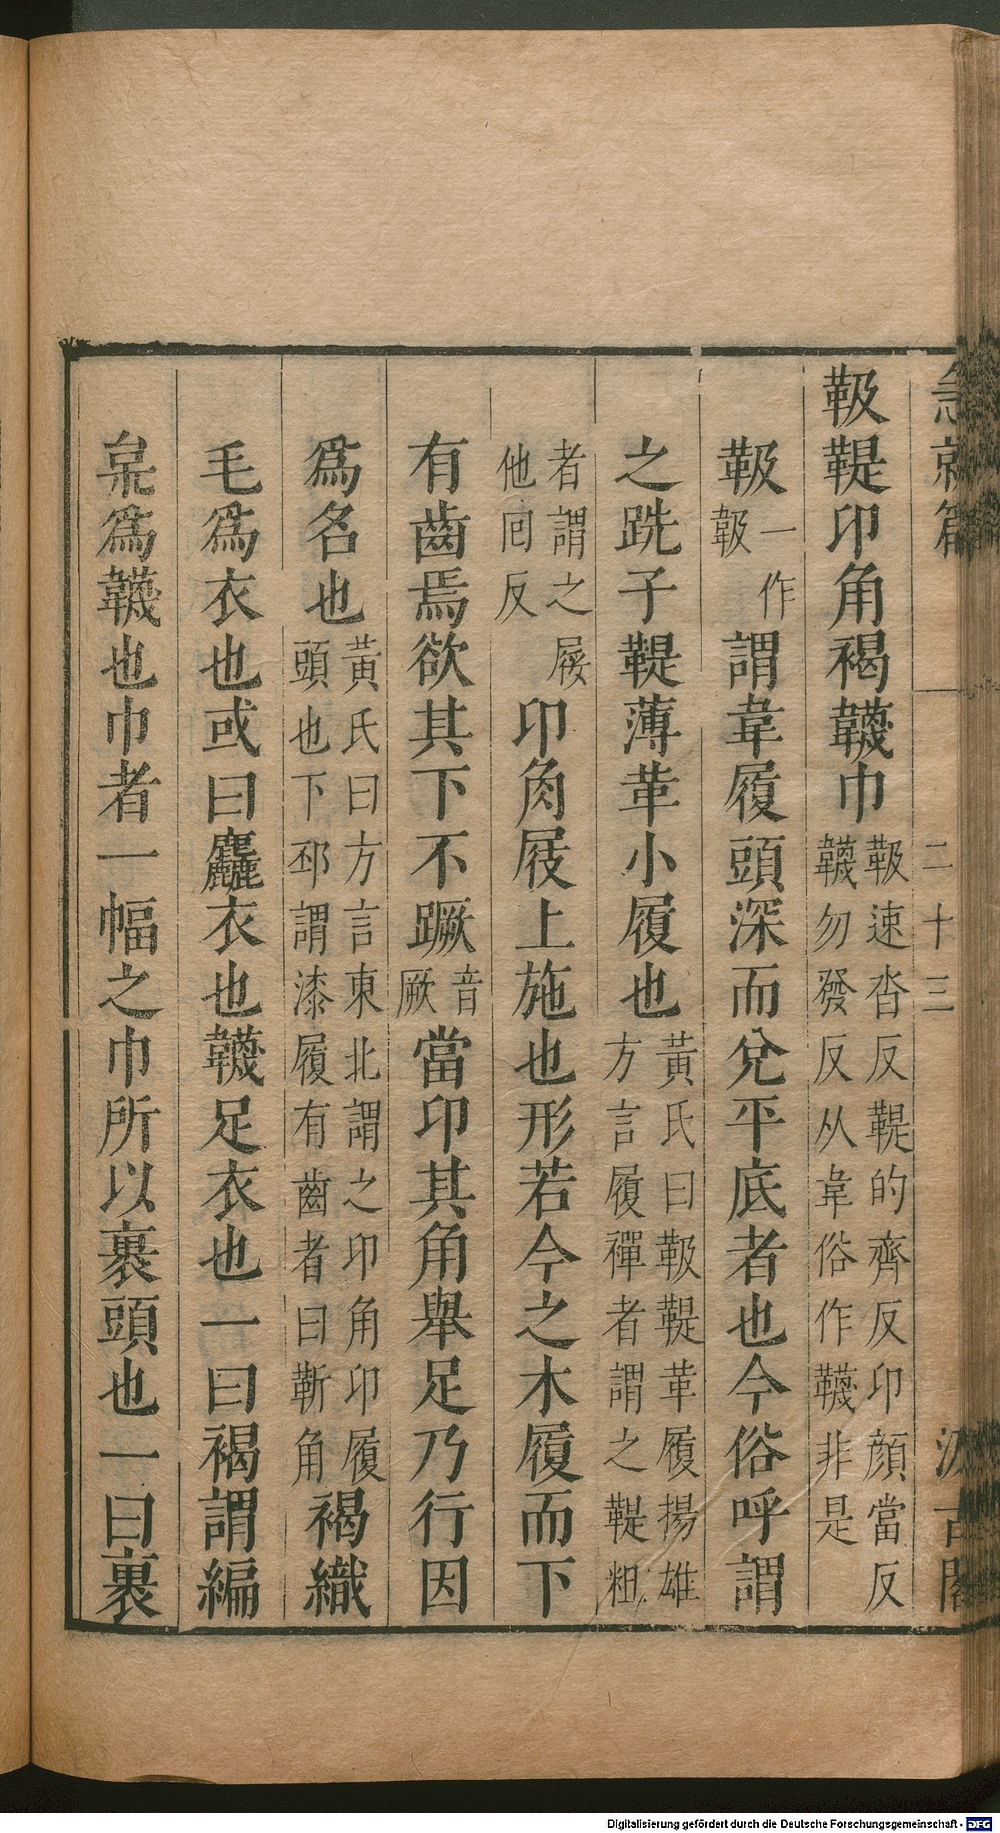 急就篇 二十三 汲古閣
靸鞮卬角褐韤巾靸速沓反鞮的齊反卬顔當反
韤勿發反从韋俗作韈非是
靸一作
靸謂韋履頭深而兌平底者也今俗呼謂
之跣子鞮薄革小履也黃氏曰靸鞮革履揚雄
方言履襌者謂之鞮粗
者謂之屦
他回反卬角屐上施也形若今之木履而下
有齒焉欲其下不蹶音
厥當卬其角舉足乃行因
爲名也黃氏曰方言東北謂之卬角卬履
頭也下邳謂漆履有齒者曰靳角褐織
毛爲衣也或曰麤衣也韤足衣也一曰褐謂編
枲爲韤也巾者一幅之巾所以裹頭也一曰裹
Digitalisierung gefördert durch die Deutsche Forschungsgemeinschaft - DFG